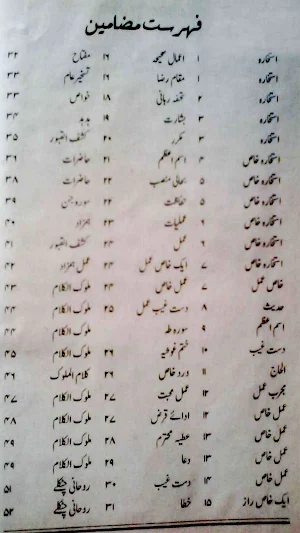 فہرست مضامین
استخارہ ۱ اعمال صحیحہ ۱۶ مفتاح ۳۲
استخارہ ۱ مقام رضا ۱۶ تسخیر عام ۳۳
استخارہ ۲ تحفہ ربانی ۱۸ خواص ۳۳
استخارہ ۳ بشارت ۱۹ ہدہد ۳۴
استخارہ ۳ مکرر ۲۰ کشف القبور ۳۵
استخارہ خاص ۴ اسم اعظم ۲۱ حاضرات ۳۶
استخارہ خاص ۵ بحالی منصب ۲۲ حاضرات ۳۸
استخارہ خاص ۵ حفاظت ۲۲ سورہ جن ۳۹
استخارہ خاص ۶ عملیات ۲۳ ہمزاد ۴۰
استخارہ خاص ۶ عمل ۲۳ کشف القبور ۴۱
استخارہ خاص ۷ ایک خاص عمل ۲۴ عمل ہمزاد ۴۲
خاص عمل ۷ عمل خاص ۲۴ ملوک الکلام ۴۳
حدیث ۸ دست غیب عمل ۲۵ ملوک الکلام ۴۴
اسم اعظم ۹ سورہ طہ ملوک الکلام ۴۴
دست غیب ۱۰ ختم غوثیہ ۲۶ ملوک الکلام ۴۵
الحاج ۱۱ درد خاص ۲۶ کلام الملوک ۴۶
مجرب عمل ۱۲ عمل محبت ۲۷ ملوک الکلام ۴۷
عمل خاص ۱۲ ادائے قرض ۲۷ ملوک الکلام ۴۸
عمل خاص ۱۳ عطیہ محترم ۲۸ ملوک الکلام ۴۹
عمل خاص ۱۳ دعا ۲۹ ملوک الکلام ۴۹
عمل خاص ۱۴ دست غیب ۳۰ روحانی چٹکلے ۵۱
ایک خاص راز ۱۵ خطا ۳۱ روحانی چٹکلے ۵۲